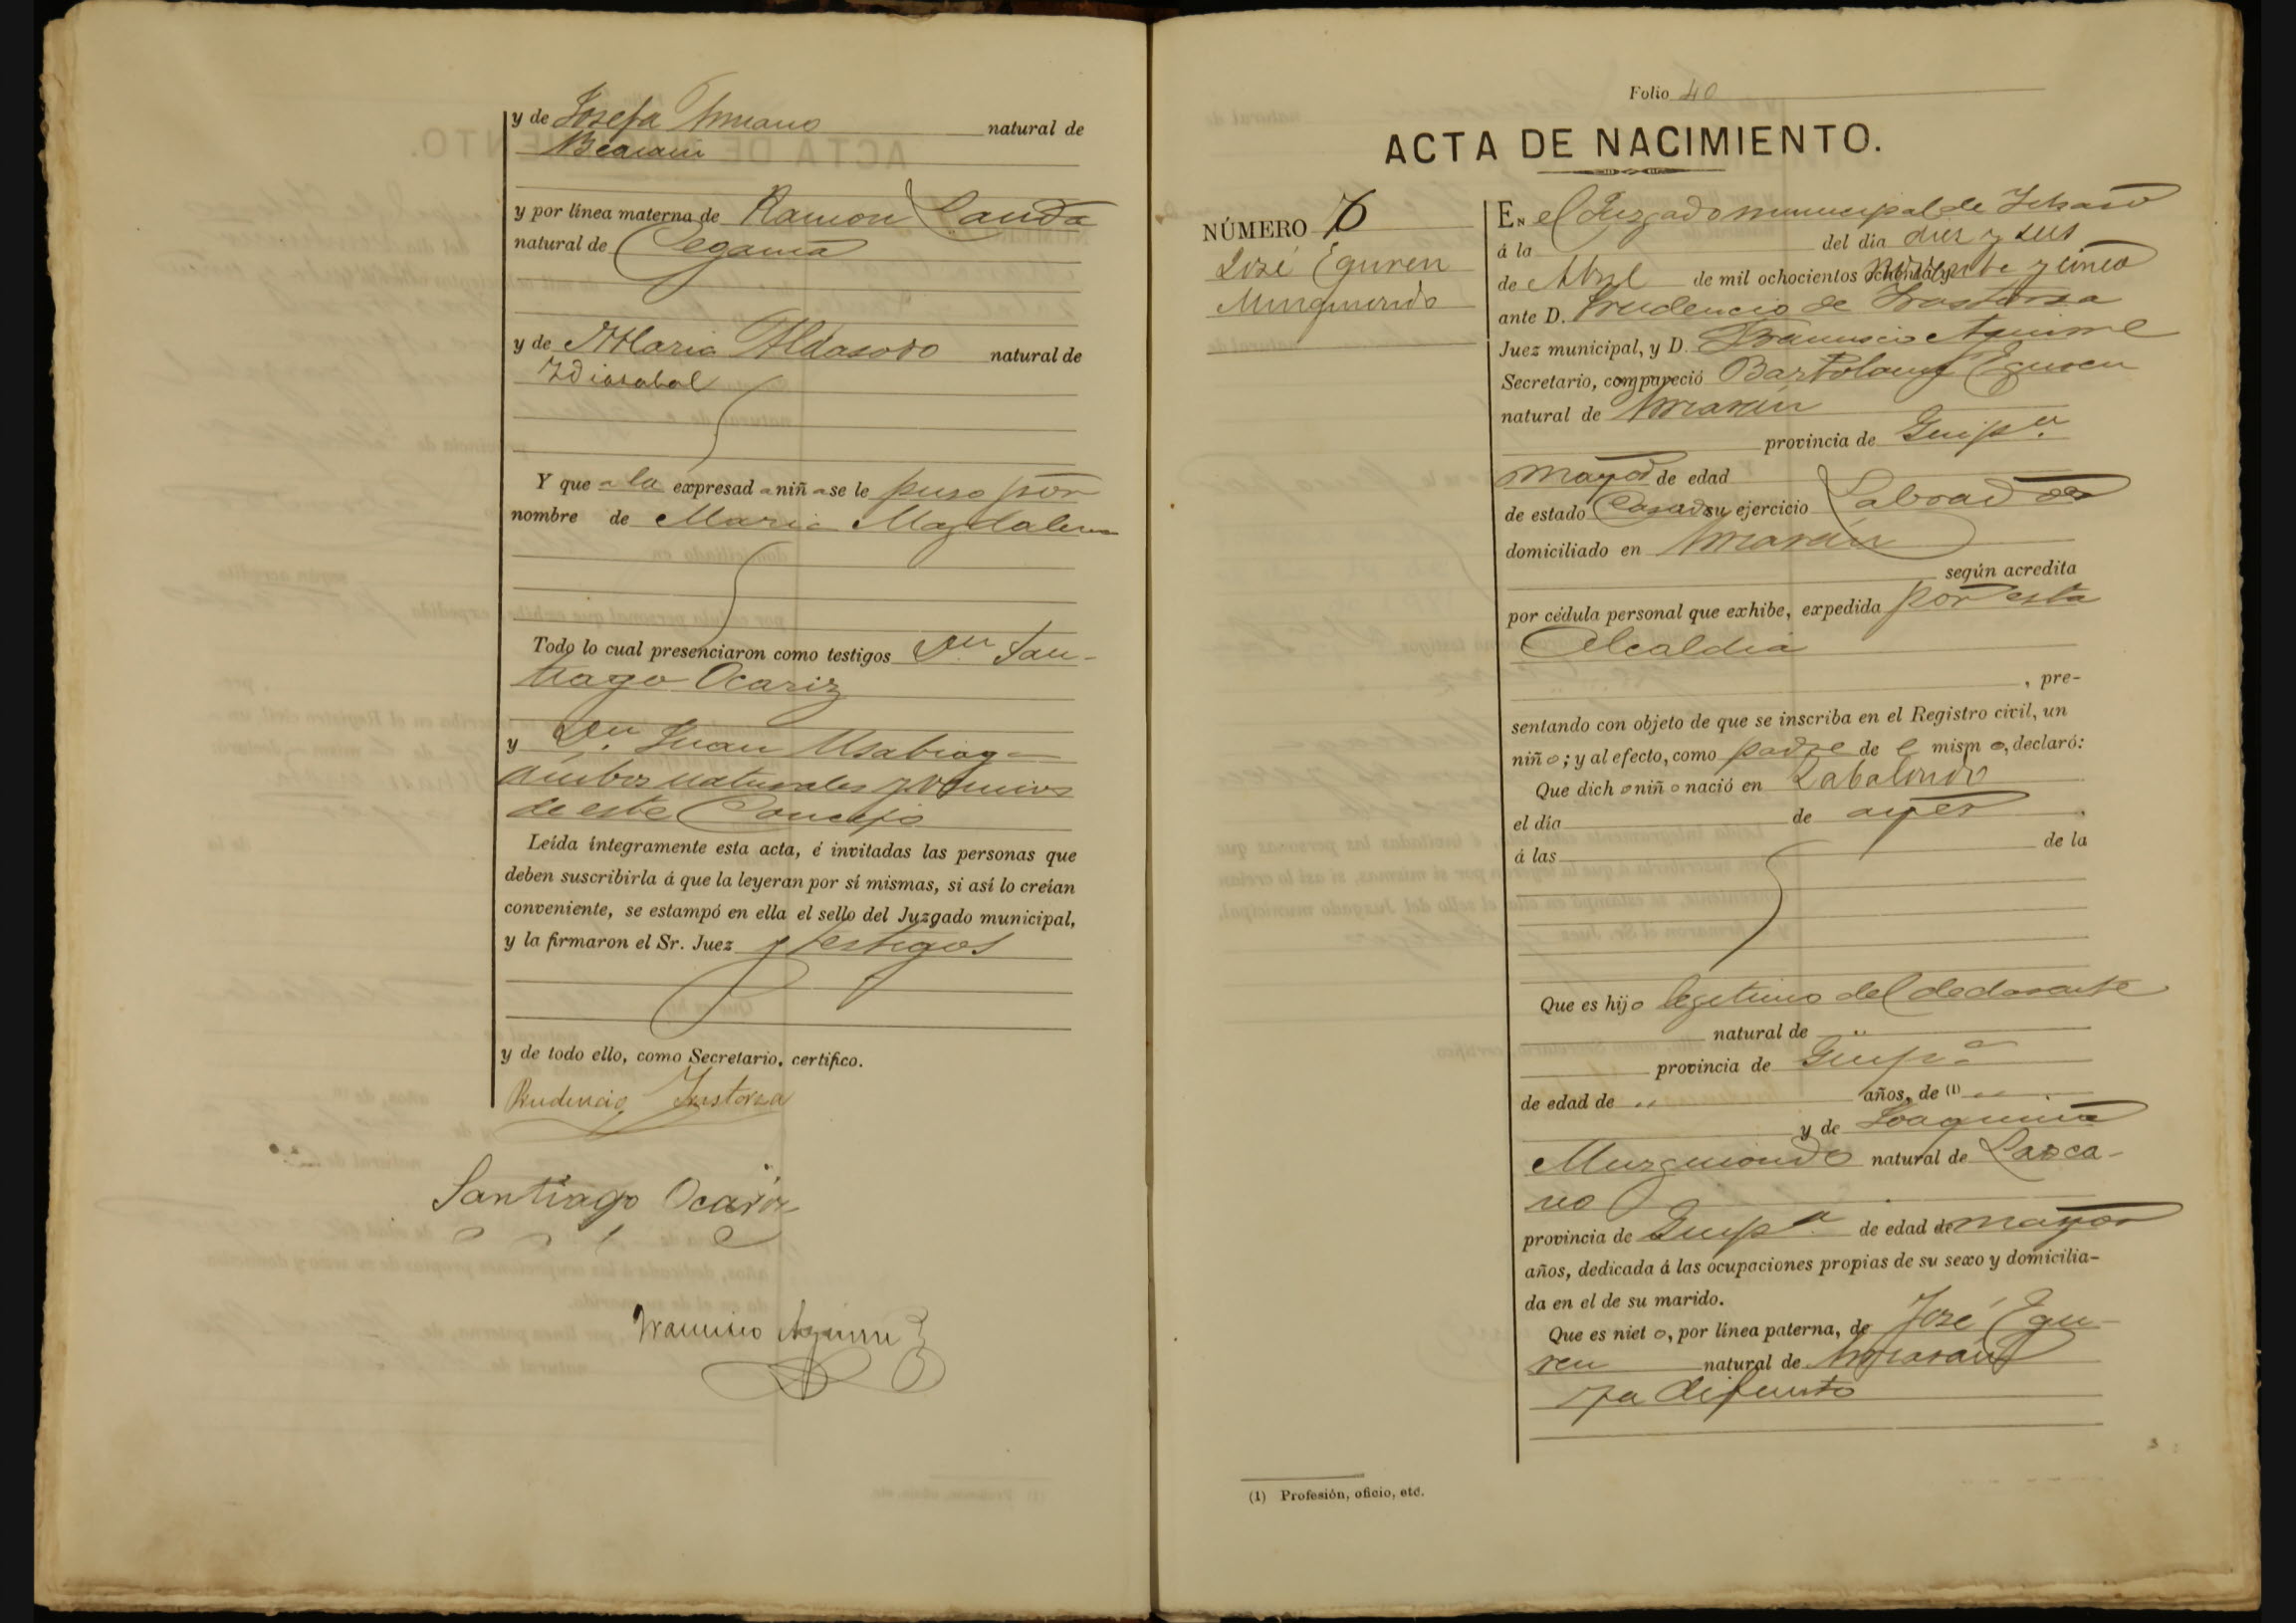 y de Josefa natural de
Beasain
y por línea materna de Ramon Landa
natural de Cegama
y de Maria Aldasoro natural de
Idiazabal
Y que a la expresad a niñ a se le puso por
nombre de Maria Magdalena
Todo lo cual presenciaron como testigos Dn San-
tiago Ocariz
y Dn. Juan Usabiag
ambos naturales y vecinos
de este Concejo
Leída íntegramente esta acta, é invitadas las personas que
deben suscribirla á que la leyeran por sí mismas, si así lo creían
conveniente, se estampó en ella el sello del Juzgado municipal,
y la firmaron el Sr. Juez y testigos
y de todo ello, como Secretario, certifico.
Prudencio Irastorza
Santiago Ocariz
Francisco Aguirre
Folio 40
ACTA DE NACIMIENTO.
NÚMERO 7
José Eguren
Murguiondo
EN el Juzgado municipal de Ichaso
á la del día diez y seis
de Abril de mil ochocientos noventa y cinco
ante D. Prudencio de Irastorza
Juez municipal, y D. Francisco Aguirre
Secretario, compareció Bartolomé Eguren
natural de Arriarán
provincia de Guipa.
mayor de edad
de estado Casado su ejercicio Labrador
domiciliado en Arriarán
según acredita
por cédula personal que exhibe, expedida por esta
Alcaldia
, pre-
sentando con objeto de que se inscriba en el Registro civil, un
niñ o; y al efecto, como padre de el mism o, declaró:
Que dich o niñ o nació en Zabalondo
el día de ayer
á las de la
Que es hijo legitimo del declarante
natural de "
provincia de Guipa
de edad de " años, de (1) "
y de Joaquina
Murguiondo natural de Lazca-
no
provincia de Guipa. de edad de mayor
años, dedicada á las ocupaciones propias de su sexo y domicilia-
da en el de su marido.
Que es niet o, por línea paterna, de José Egu-
ren natural de Arriarán
ya difunto
(1) Profesión, oficio, etc.